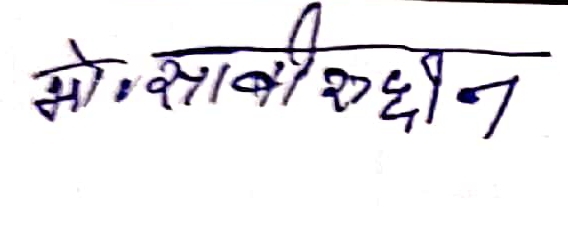 मो. साबीरुद्दीन